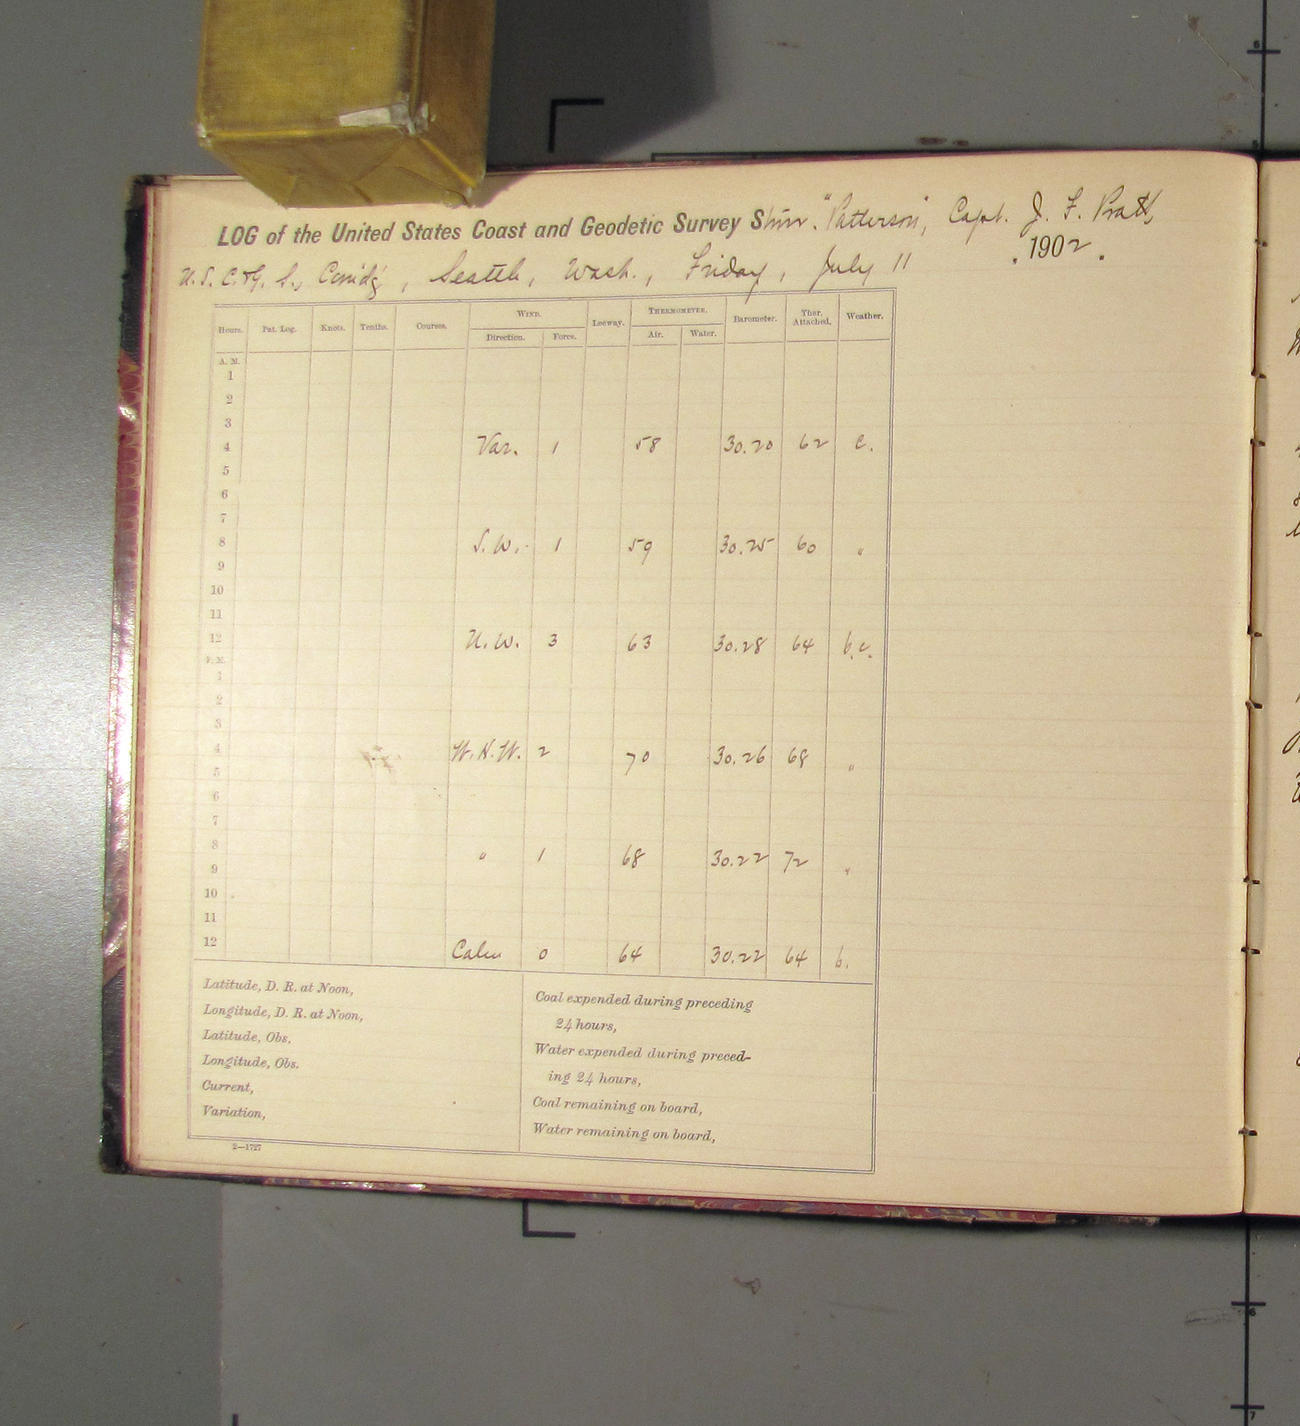 LOG of the United States Coast and Geodetic Survey Stmr. "Patterson", Capt. J. F. Pratt,
U. S. C. & G. S., Comd'g, Seattle, Wash., Friday, July 11, 1902.
Hours. Pat. Log. Knots. Tenths. Courses. WIND. Leeway. THERMOMETER. Barometer. Ther. Attached. Weather.
Direction. Force. Air. Water.
A. M.
1
2
3
4 Var. 1 58 30.20 62 c.
5
6
7
8 S.W. 1 59 30.25 60 "
9
10
11
12 N.W. 3 63 30.28 64 b.c.
P. M.
1
2
3
4 W.N.W. 2 70 30.26 68 "
5
6
7
8 " 1 68 30.22 72 "
9
10
11
12 Calm 0 64 30.22 64 b.
Latitude, D. R. at Noon,
Longitude, D. R. at Noon,
Latitude, Obs.
Longitude, Obs.
Current,
Variation,
Coal expended during preceding
24 hours,
Water expended during preced-
ing 24 hours,
Coal remaining on board,
Water remaining on board,
2—1727